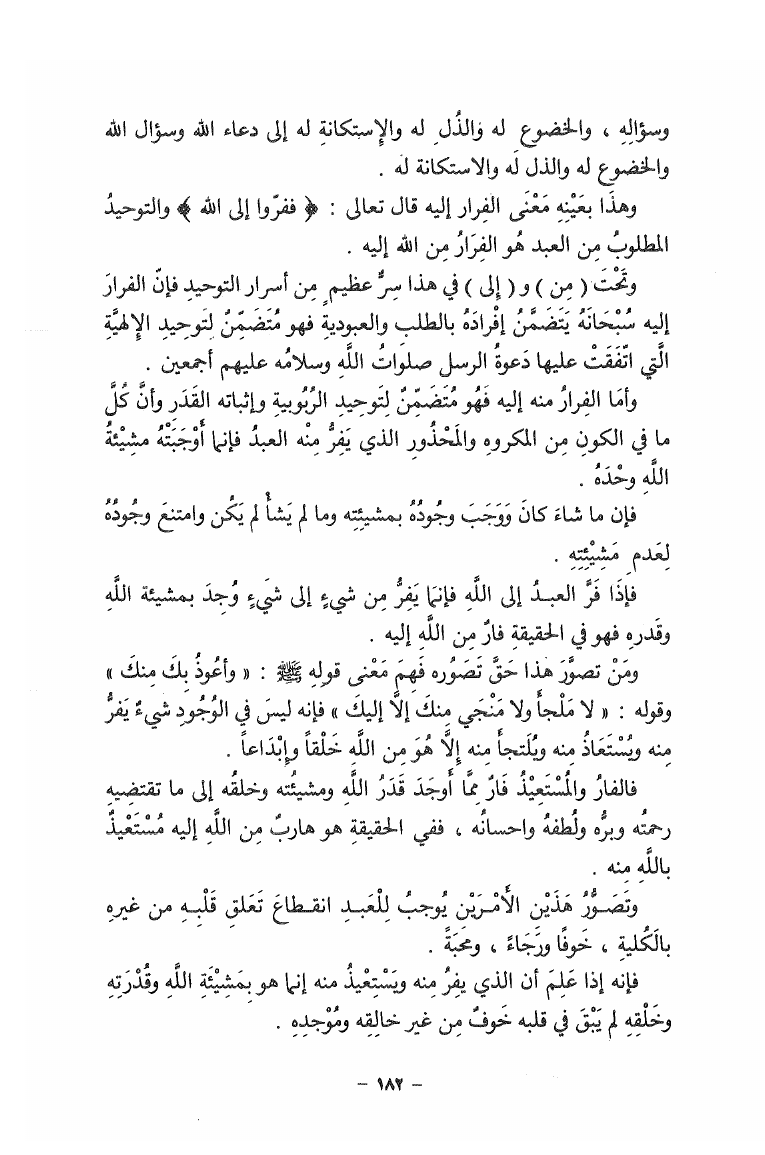 وسؤالِهِ ، والخضوعِ له وَالذُّلِ له والإِستكانةِ له إلى دعاء الله وسؤال الله
والخضوع له والذل لَه والاستكانة له .
وهذَا بعَيْنِهِ مَعْنَى الفِرار إليه قال تعالى : ﴿ ففرّوا إلى الله ﴾ والتوحيدُ
المطلوبُ مِن العبد هُو الفِرَارُ مِن الله إليه .
وتَحْتَ ( مِن ) و ( إلى ) في هذا سِرٌّ عظيمٍ مِن أسرار التوحيدِ فإنّ الفرارَ
إليه سُبْحَانَهُ يَتَضَمَّنُ إفْرادَهُ بالطلبِ والعبوديةِ فهو مُتَضَمّنٌ لِتوحيدِ الإلهيَّةِ
الَّتي اتّفَقَتْ عليها دَعوةُ الرسلِ صلواتُ اللَّهِ وسلامُه عليهم أجمعين .
وأمَا الفِرارُ منه إليه فَهُو مُتَضَمِّنٌ لِتَوحيدِ الرُّبُوبيةِ وإثباته القَدَرِ وأنَّ كُلَّ
ما في الكونِ مِن المكروهِ والمَحْذُورِ الذي يَفِرُّ مِنْه العبدُ فإنما أَوْجَبَتْهُ مشِيْئةُ
اللَّهِ وحْدَهُ .
فإن ما شاءَ كانَ وَوَجَبَ وجُودُهُ بمشيئتِه وما لم يَشأْ لم يَكُن وامتنعَ وجُودُهُ
لِعَدمِ مَشِيْئِتِهِ .
فإذَا فَرَّ العبـدُ إلى اللَّهِ فإنمَا يَفرُّ مِن شيءٍ إلى شَيءٍ وُجِدَ بمشيئة اللَّهِ
وقَدرِهِ فهو في الحقيقةِ فارٌ مِن اللَّهِ إليه .
ومَنْ تصوَّرَ هذا حَقَّ تَصَوُره فَهِمَ مَعْنى قولِهِ ﷺ : « وأعُوذُ بِكَ مِنكَ »
وقوله : « لا مَلْجأَ ولا مَنْجَي مِنكَ إلَّا إليكَ » فإنه ليسَ في الوُجُودِ شيءٌ يَفرُّ
مِنه ويُسْتَعَاذُ مِنه ويُلَتجأُ مِنه إلَّا هُوَ مِن اللَّهِ خَلْقاً وإبْدَاعاً .
فالفارُ والمُسْتَعِيْذُ فَارٌ مِمَّا أوجَدَ قَدَرُ اللَّهِ ومشيئُته وخلقُه إلى ما تقتضيهِ
رحمتُه وبرُّه ولُطفهُ واحسانُه ، ففي الحقيقةِ هو هاربٌ مِن اللَّهِ إليه مُسْتَعْيذٌ
باللَّهِ مِنه .
وتَصَـوُّرُ هَذَيْن الأَمْـرَيْن يُوجبُ لِلْعَبـدِ انقـطاعَ تَعَلقِ قَلْبِـهِ من غيرِهِ
بالَكُليةِ ، خَوفًا ورَجَاءً ، ومحَبَةً .
فإنه إذا عَلِمَ أن الذي يفِرُ مِنه ويَسْتِعيذُ منه إنما هو بِمَشِيْئَةِ اللَّهِ وقُدْرَتِهِ
وخَلْقِهِ لم يَبْقَ في قلبه خَوفٌ مِن غير خالِقِه ومُوْجدِهِ .
– ١٨٢ –